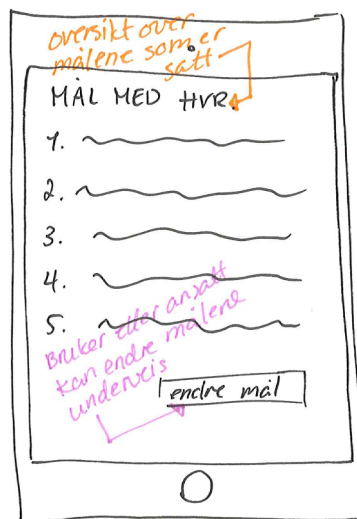 oversikt over
målene som er
satt
MÅL MED HVR.
1.
2.
3.
4.
5.
Bruker eller ansatt
kan endre målene
underveis
endre mål